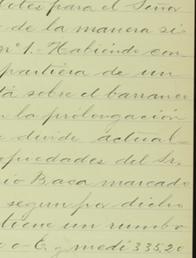 para el Señor
de la manera si
nº 1. Habiendo con
partiera de un
sobre el barranco
la prolongación
divide actual-
opiedades del Sr.
Baca marcado
segun por dicho
tiene un rumbo
o-E. y medi 335,20